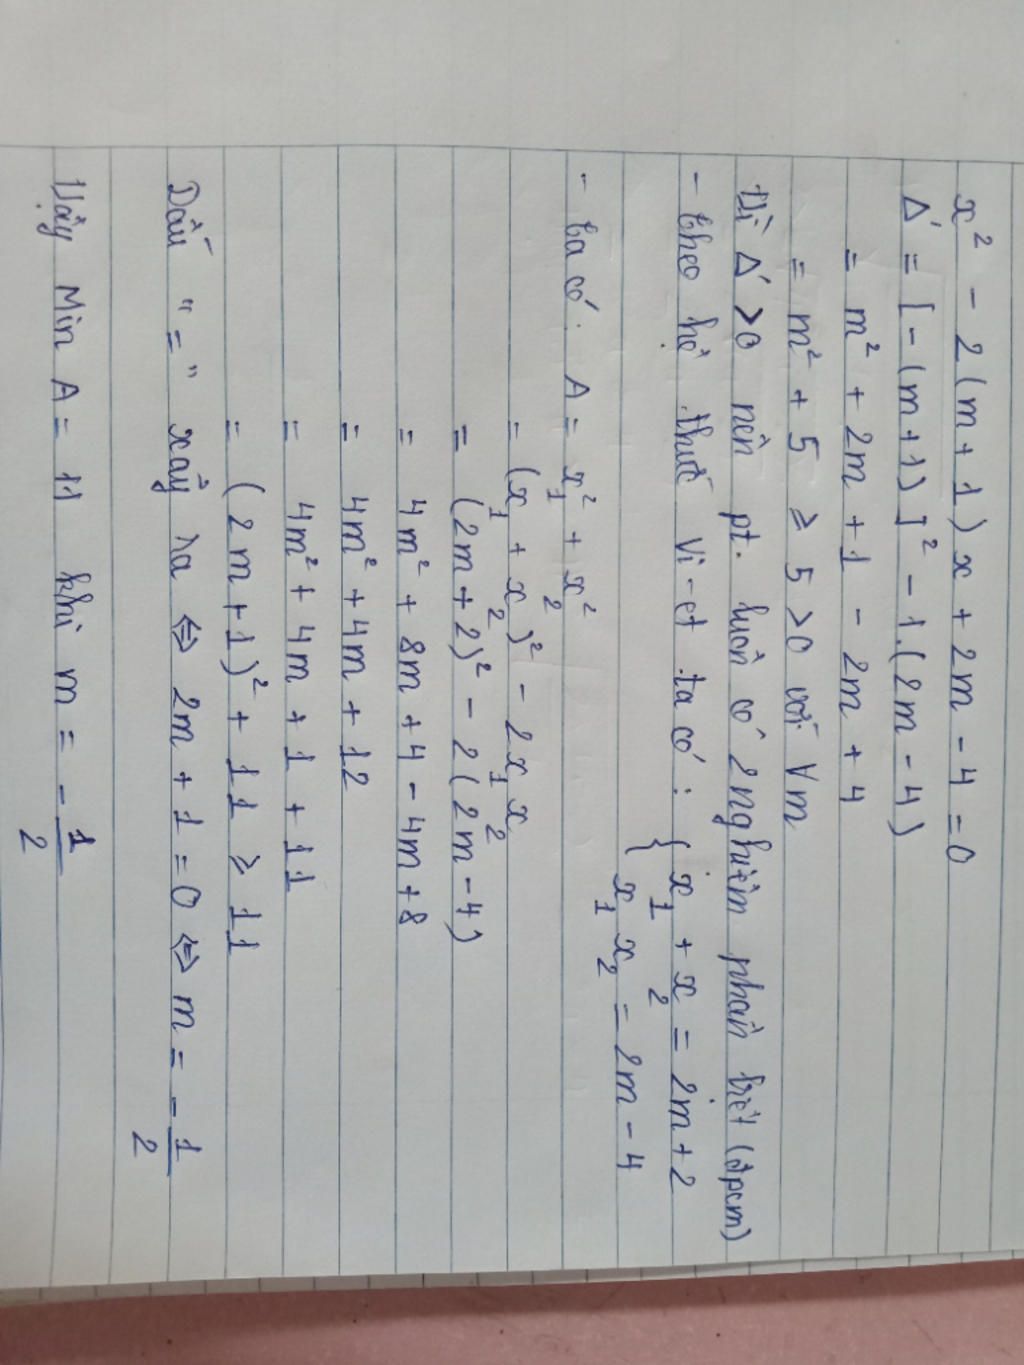 x² - 2(m+1)x + 2m - 4 = 0
Δ' = [-(m+1)]² - 1.(2m - 4)
= m² + 2m + 1 - 2m + 4
= m² + 5 ≥ 5 > 0 với ∀m
Vì Δ' > 0 nên pt. luôn có 2 nghiệm phân biệt (đpcm)
- theo hệ thức Vi-et ta có: { x₁ + x₂ = 2m + 2
{ x₁ x₂ = 2m - 4
- ta có: A = x₁² + x₂²
= (x₁ + x₂)² - 2x₁x₂
= (2m + 2)² - 2(2m - 4)
= 4m² + 8m + 4 - 4m + 8
= 4m² + 4m + 12
= 4m² + 4m + 1 + 11
= (2m + 1)² + 11 ≥ 11
Dấu "=" xảy ra ⇔ 2m + 1 = 0 ⇔ m = -1/2
Vậy Min A = 11 khi m = -1/2